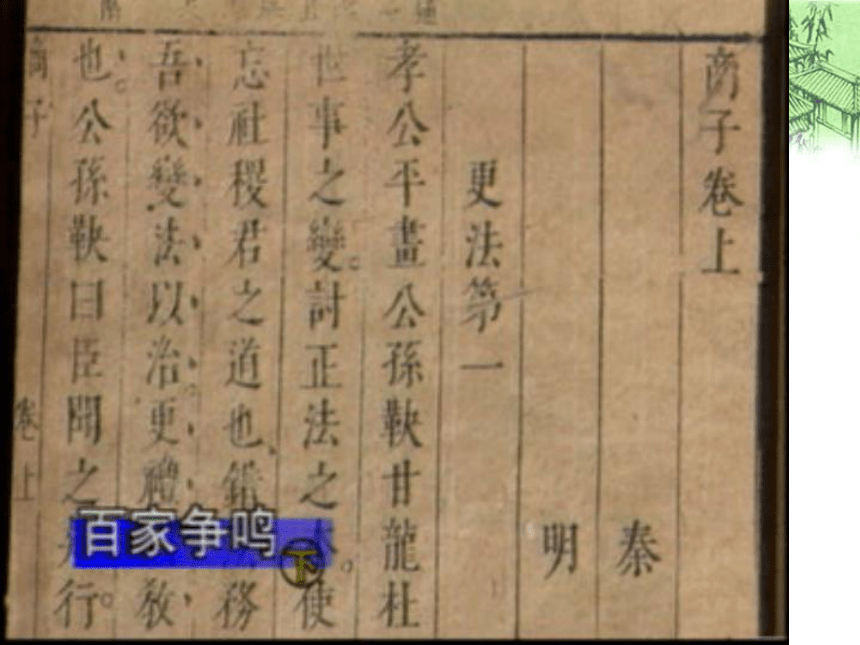 商子卷上
秦
明
更法第一
孝公平畫公孫鞅甘龍杜
世事之變。討正法之本。使
忘社稷君之道也、錯務
吾欲變法以治更禮教
也。公孫鞅曰臣聞之行。
商子 卷上
百家争鸣 下